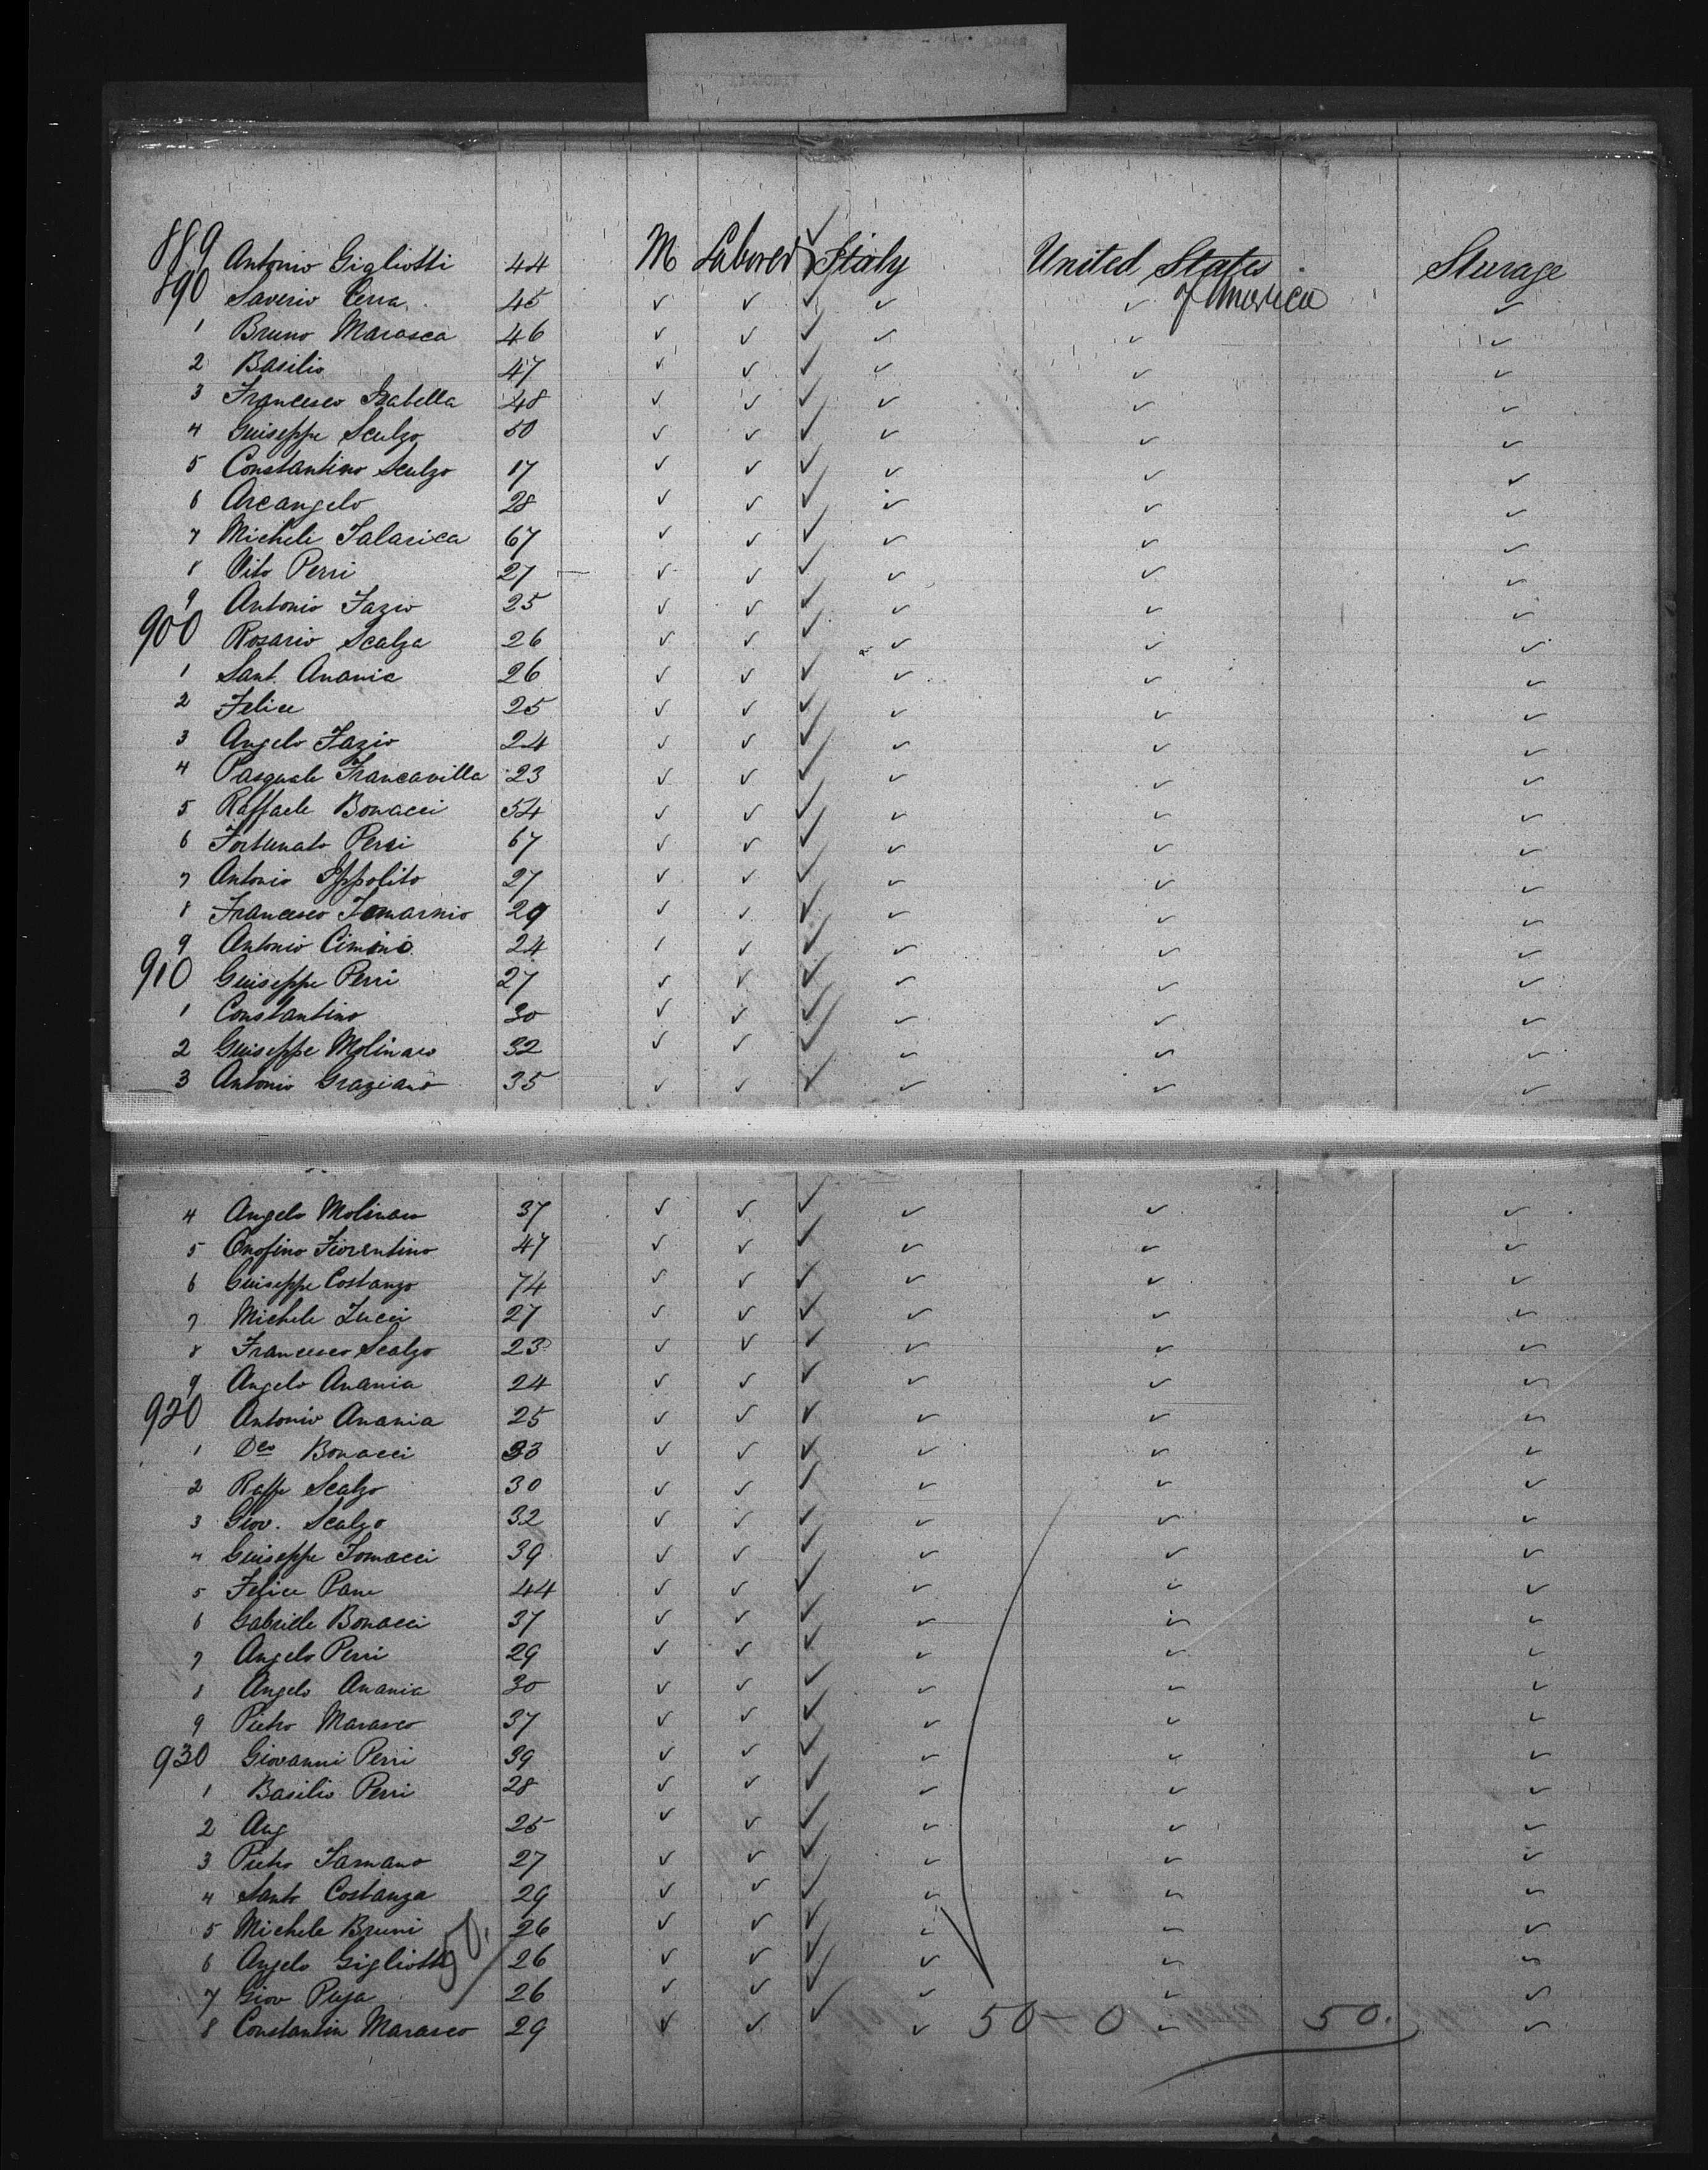 889 Antonio Gigliotti 44 M Laborer Italy United States Sturage
890 Saverio Cerra 45 of America
1 Bruno Marasca 46
2 Basilio 47
3 Francesco Isabella 48
4 Guiseppe Scalzo 50
5 Constantino Scalzo 17
6 Arcangelo 28
7 Michele Talarica 67
8 Vito Perri 27
9 Antonio Fazio 25
900 Rosario Scalza 26
1 Sant. Anania 26
2 Felice 25
3 Angelo Fazio 24
4 Pasquale Francavilla 23
5 Raffaele Bonacci 54
6 Fortunato Perri 67
7 Antonio Ippolito 27
8 Francesco 29
9 Antonio Cimino 24
910 Guiseppe Perri 27
1 Constantino 30
2 Guiseppe Molinaro 32
3 Antonio Graziano 35
4 Angelo Molinaro 37
5 Onofino Fiorentino 47
6 Guiseppe Costanzo 74
7 Michele 27
8 Francesco Scalzo 23
9 Angelo Anania 24
920 Antonio Anania 25
1 Dco Bonacci 33
2 Raffe Scalzo 30
3 Giov. Scalzo 32
4 Guiseppe 39
5 Felice Pane 44
6 Gabriele Bonacci 37
7 Angelo Perri 29
8 Angelo Anania 30
9 Pietro Marasco 37
930 Giovanni Perri 39
1 Basilio Perri 28
2 Ang 25
3 Pietro 27
4 Santo Costanza 29
5 Michele Bruni 26
6 Angelo Gigliotti 50. 26
7 Giov Puja 26
8 Constantin Marasco 29 50 - 0 50.